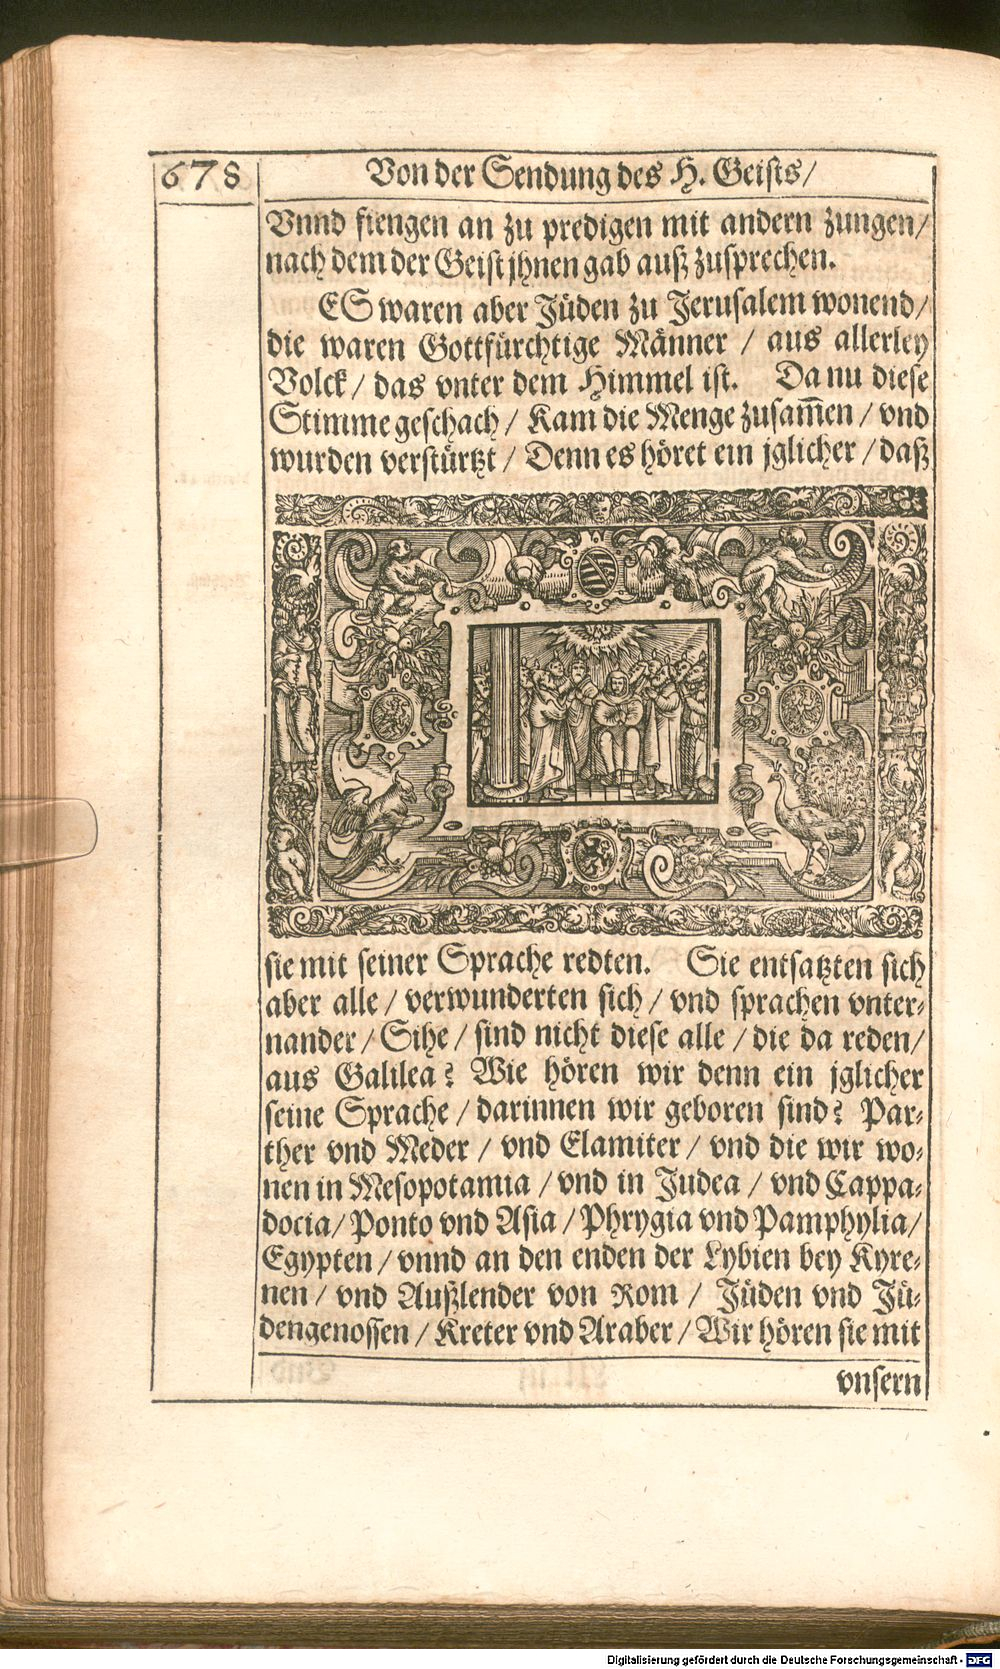 678
Von der Sendung des H. Geists/
Vnnd fiengen an zu predigen mit andern zungen/
nach dem der Geist jhnen gab auß zusprechen.
ES waren aber Jüden zu Jerusalem wonend/
die waren Gottfürchtige Männer / aus allerley
Volck / das vnter dem Himmel ist. Da nu diese
Stimme geschach / Kam die Menge zusam̄en / vnd
wurden verstürtzt / Denn es höret ein jglicher / daß
sie mit seiner Sprache redten. Sie entsatzten sich
aber alle / verwunderten sich / vnd sprachen vnter-
nander / Sihe / sind nicht diese alle / die da reden/
aus Galilea? Wie hören wir denn ein jglicher
seine Sprache / darinnen wir geboren sind? Par-
ther vnd Meder / vnd Elamiter / vnd die wir wo-
nen in Mesopotamia / vnd in Judea / vnd Cappa-
docia/ Ponto vnd Asia / Phrygia vnd Pamphylia/
Egypten / vnnd an den enden der Lybien bey Kyre-
nen / vnd Außlender von Rom / Jüden vnd Jü-
dengenossen / Kreter vnd Araber / Wir hören sie mit
vnsern
Digitalisierung gefördert durch die Deutsche Forschungsgemeinschaft - DFG